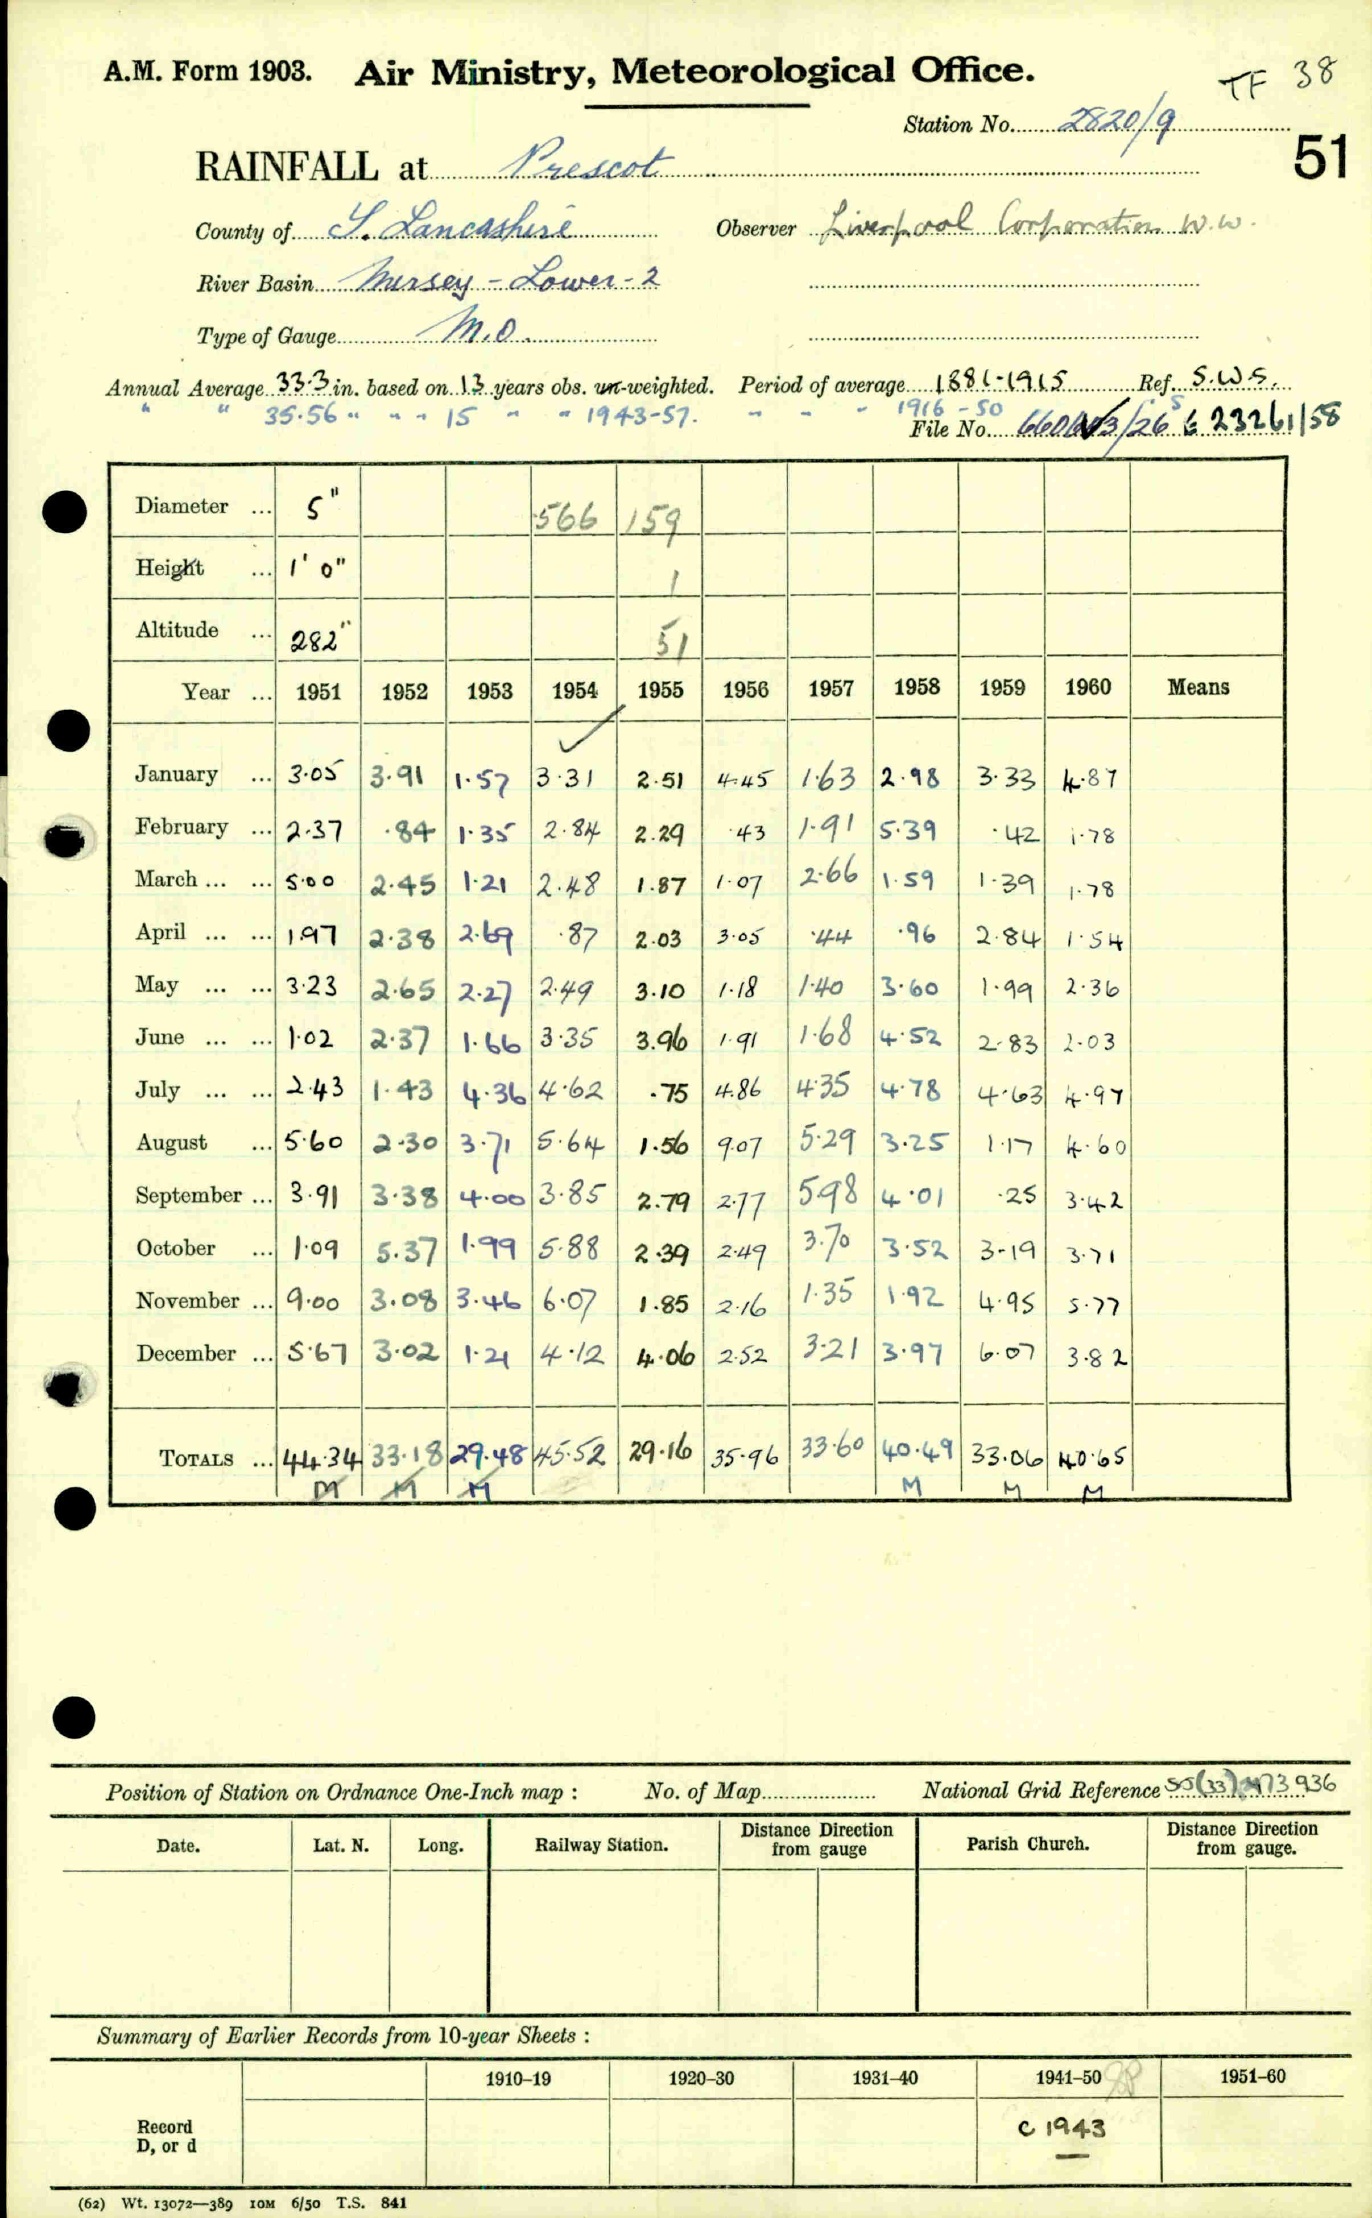 A.M. Form 1903. Air Ministry, Meteorological Office. TF 38
Station No. 2820/9
51
RAINFALL at Prescot
County of S. Lancashire Observer Liverpool Corporation W.W.
River Basin Mersey - Lower - 2
Type of Gauge M.O.
Annual Average 33.3 in. based on 13 years obs. un-weighted. Period of average 1881-1915 Ref. S.W.S.
" " 35.56 " " " 15 " " 1943-57. " " " 1916-50
File No. /26 & 23261/58
Diameter ... 5" 566 159
Height ... 1' 0" 1
Altitude ... 282" 51
Year ... 1951 1952 1953 1954 1955 1956 1957 1958 1959 1960 Means
January ... 3.05 3.91 1.57 3.31 2.51 4.45 1.63 2.98 3.33 4.87
February ... 2.37 .84 1.35 2.84 2.29 .43 1.91 5.39 .42 1.78
March ... ... 5.00 2.45 1.21 2.48 1.87 1.07 2.66 1.59 1.39 1.78
April ... ... 1.97 2.38 2.69 .87 2.03 3.05 .44 .96 2.84 1.54
May ... ... 3.23 2.65 2.27 2.49 3.10 1.18 1.40 3.60 1.99 2.36
June ... ... 1.02 2.37 1.66 3.35 3.96 1.91 1.68 4.52 2.83 2.03
July ... ... 2.43 1.43 4.36 4.62 .75 4.86 4.35 4.78 4.63 4.97
August ... 5.60 2.30 3.71 5.64 1.56 9.07 5.29 3.25 1.17 4.60
September ... 3.91 3.38 4.00 3.85 2.79 2.77 5.98 4.01 .25 3.42
October ... 1.09 5.37 1.99 5.88 2.39 2.49 3.70 3.52 3.19 3.71
November ... 9.00 3.08 3.46 6.07 1.85 2.16 1.35 1.92 4.95 5.77
December ... 5.67 3.02 1.21 4.12 4.06 2.52 3.21 3.97 6.07 3.82
TOTALS ... 44.34 33.18 29.48 45.52 29.16 35.96 33.60 40.49 33.06 40.65
M M M M M M
Position of Station on Ordnance One-Inch map : No. of Map National Grid Reference SJ(33) 473936
Date. Lat. N. Long. Railway Station. Distance Direction from gauge Parish Church. Distance Direction from gauge.
Summary of Earlier Records from 10-year Sheets :
1910–19 1920–30 1931–40 1941–50 1951–60
Record D, or d C 1943
(62) Wt. 13072—389 10M 6/50 T.S. 841